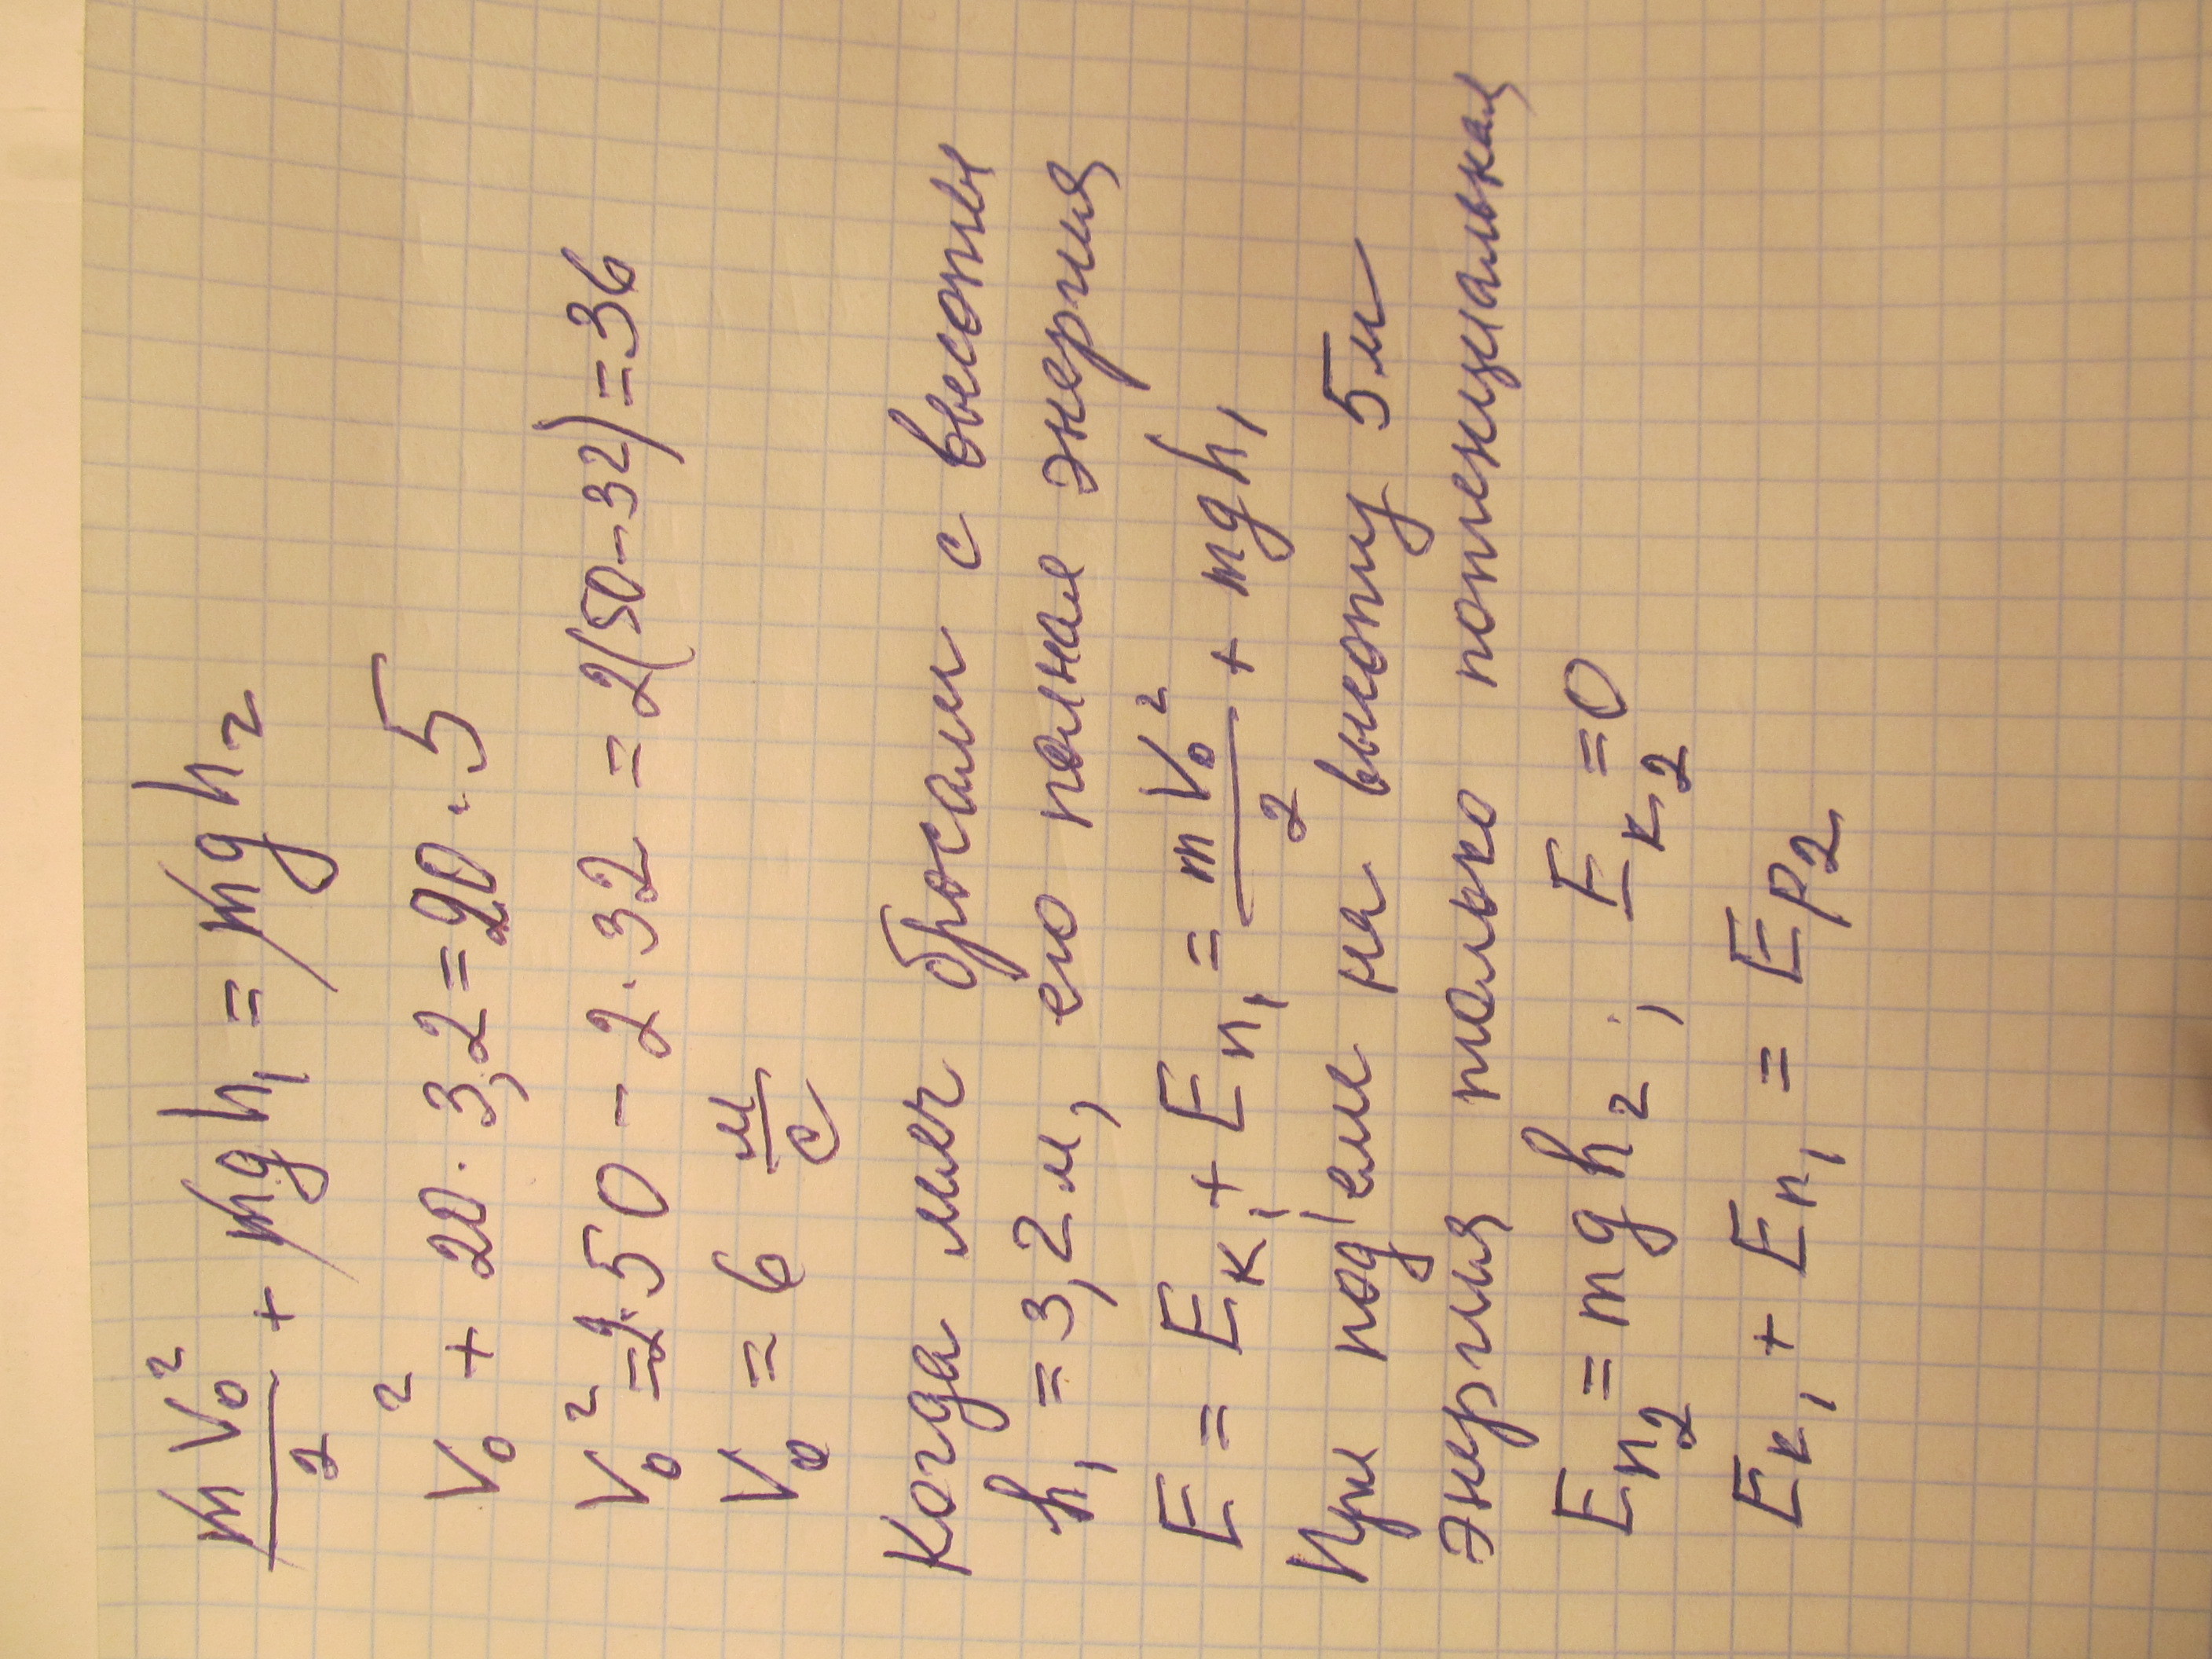 mV₀²/2 + mgh₁ = mgh₂
V₀² + 20·3,2 = 20·5
V₀² = 2·50 - 2·32 = 2(50-32) = 36
V₀ = 6 м/с
Когда мяч бросали с высоты
h₁ = 3,2 м, его полная энергия
E = Eк₁ + Eп₁ = mV₀²/2 + mgh₁
При подъеме на высоту 5м
энергия только потенциальная
Eп₂ = mgh₂; Eк₂ = 0
Eк₁ + Eп₁ = Ep₂